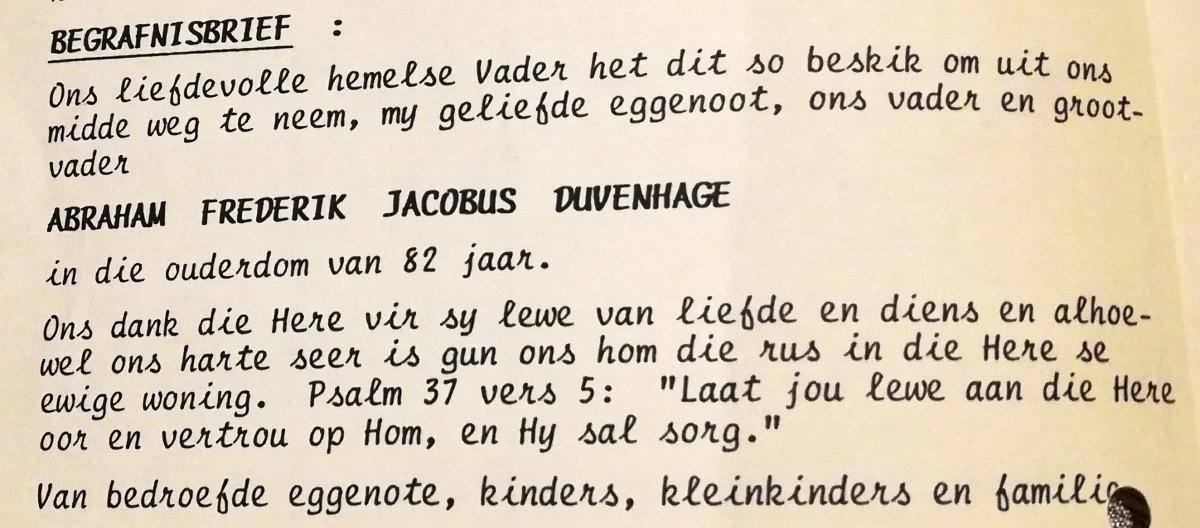 BEGRAFNISBRIEF :
Ons liefdevolle hemelse Vader het dit so beskik om uit ons
midde weg te neem, my geliefde eggenoot, ons vader en groot-
vader
ABRAHAM FREDERIK JACOBUS DUVENHAGE
in die ouderdom van 82 jaar.
Ons dank die Here vir sy lewe van liefde en diens en alhoe-
wel ons harte seer is gun ons hom die rus in die Here se
ewige woning. Psalm 37 vers 5: "Laat jou lewe aan die Here
oor en vertrou op Hom, en Hy sal sorg."
Van bedroefde eggenote, kinders, kleinkinders en familie